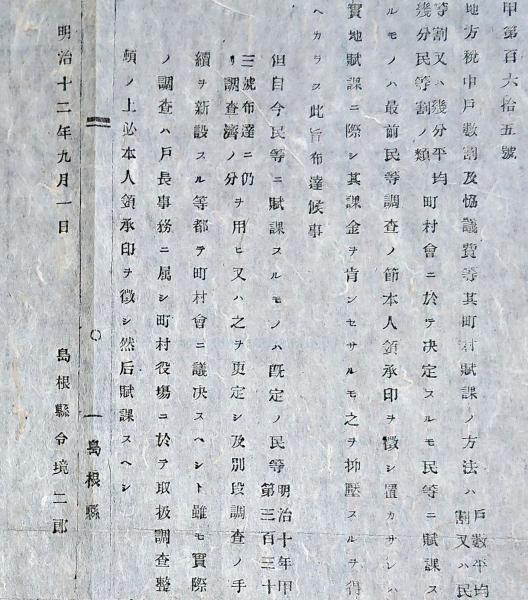 甲第百六拾五號
地方税中戸數割及恊議費等其町村賦課ノ方法ハ戸數平均割又ハ民
等割又ハ幾分平均幾分民等割ノ類町村會ニ於テ决定スルモ民等ニ賦課ス
ルモノハ最前民等調査ノ節本人領承印ヲ徴シ置カサレハ
實地賦課ニ際シ其課金ヲ肯ンセサルモ之ヲ抑壓スルヲ得
ヘカラス此旨布達候事
但自今民等ニ賦課スルモノハ既定ノ民等明治十年甲第三百三十
三號布達ニ仍リ調査濟ノ分ヲ用ヒ又ハ之ヲ更定シ及別段調査ノ手
續ヲ新設スル等都テ町村會ニ議决スヘシト雖モ實際
ノ調査ハ戸長事務ニ屬シ町村役場ニ於テ取扱調査整
頓ノ上必本人領承印ヲ徴シ然后賦課スヘシ
島根縣
明治十二年九月一日 島根縣令境二郎